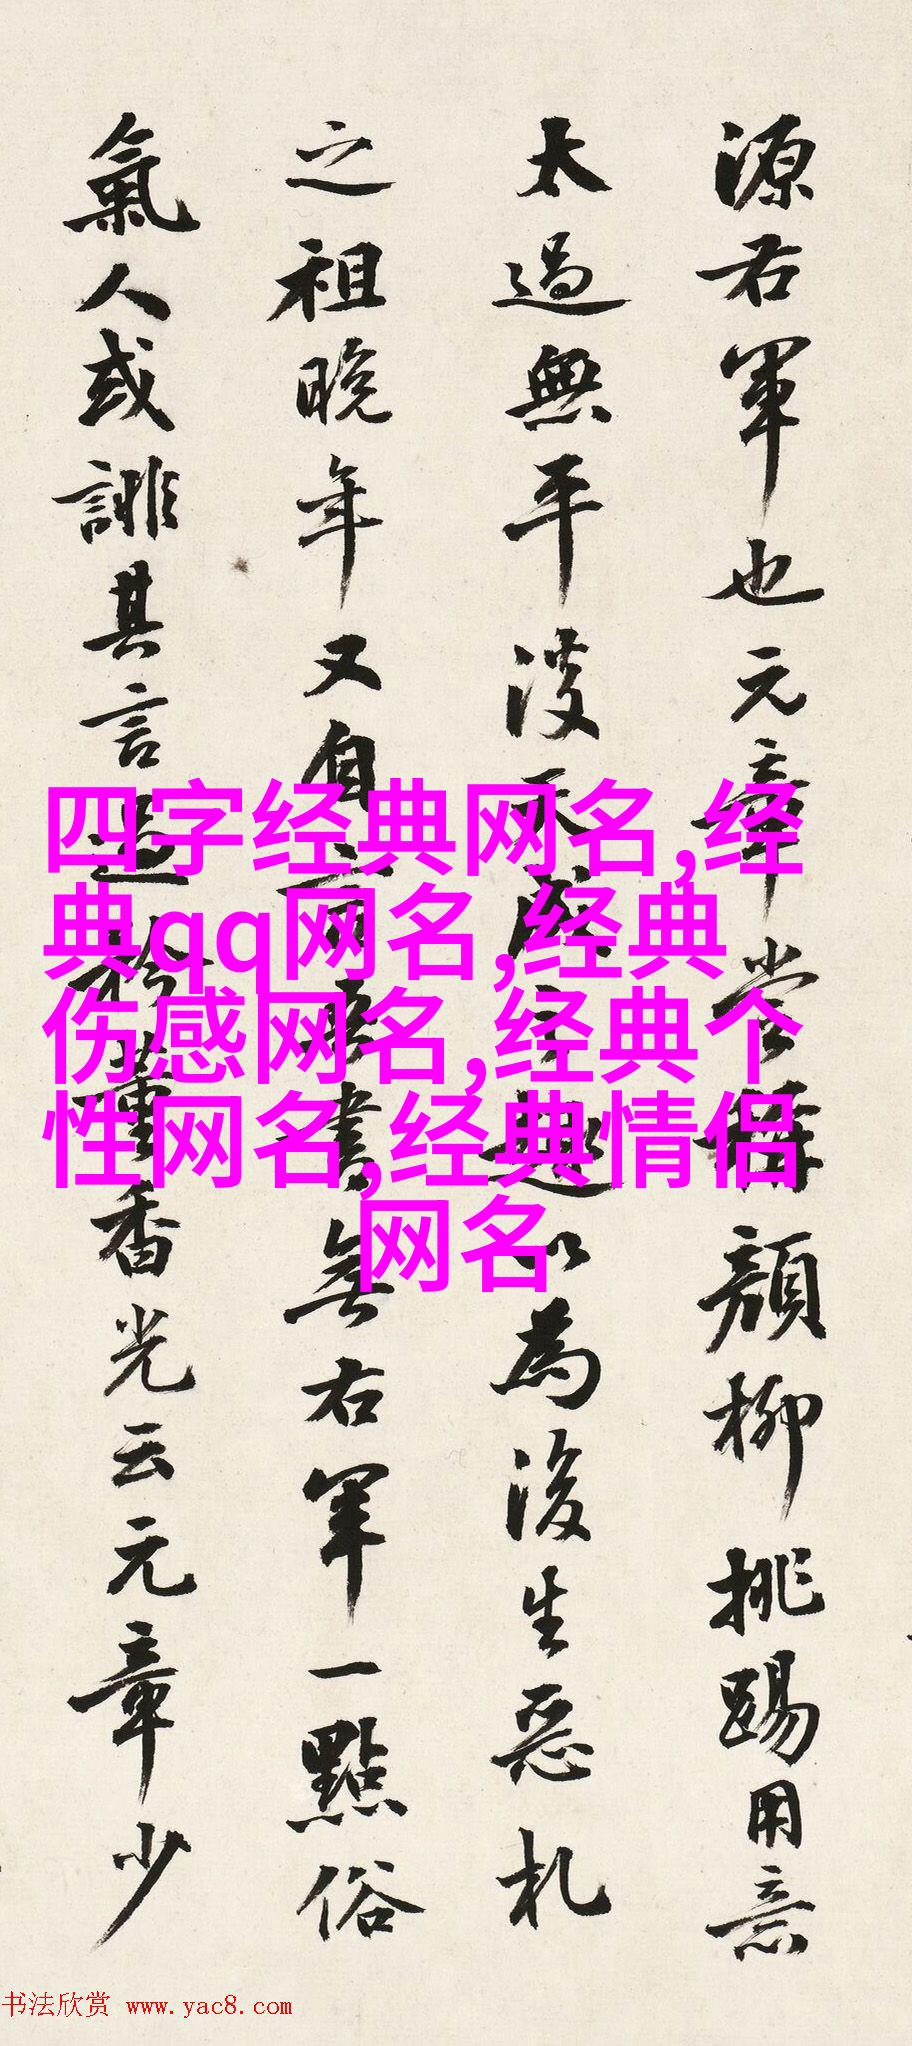 源右軍也元章嘗謂顔柳挑踢用意
太過無平淡天成之趣以為後生惡札
之祖晚年又自言吾書無右軍一點俗
氣人或誹其言過於董香光云元章少
四字经典网名,经
典qq网名,经典
伤感网名,经典个
性网名,经典情侣
网名
书法欣赏 www.yac8.com